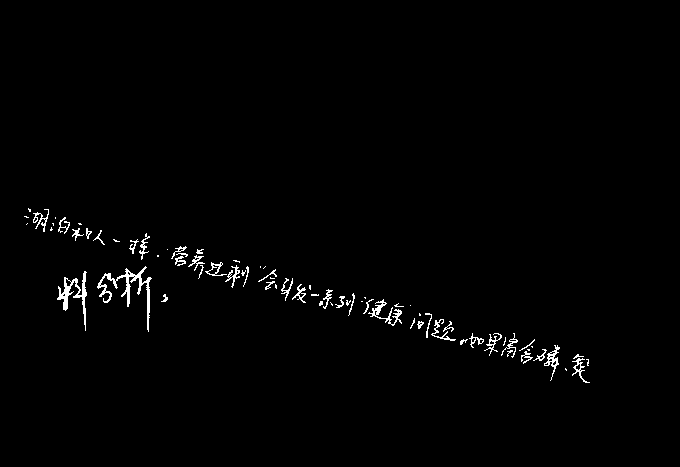 湖泊和人一样，“营养过剩”会引发一系列“健康”问题。如果富含磷、氮
料分析，